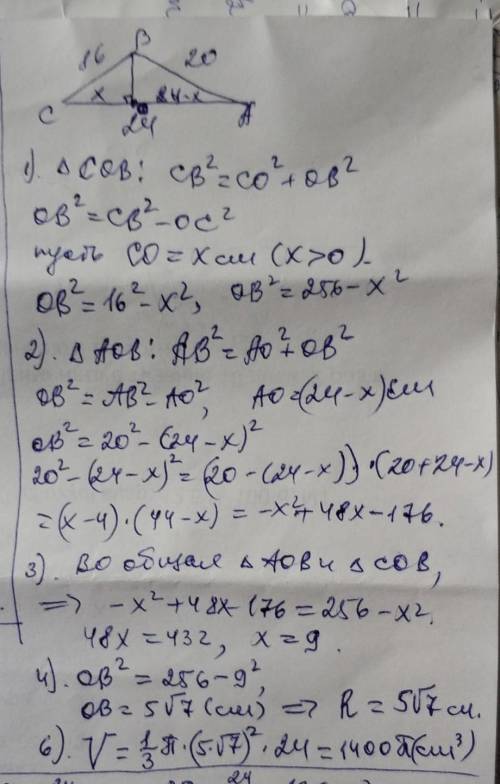 B
16 20
x 24-x
C O A
24
1). △COB: CB²=CO²+OB²
OB²=CB²-OC²
пусть CO=x см (x>0).
OB²=16²-x², OB²=256-x²
2). △AOB: AB²=AO²+OB²
OB²=AB²-AO², AO=(24-x)см
OB²=20²-(24-x)²
20²-(24-x)²=(20-(24-x))·(20+24-x)
=(x-4)·(44-x)=-x²+48x-176.
3). BO общая △AOB и △COB,
=> -x²+48x-176=256-x².
48x=432, x=9.
4). OB²=256-9²,
OB=5√7(см) => R=5√7см.
6). V=1/3π·(5√7)²·24=1400π(см³)
24